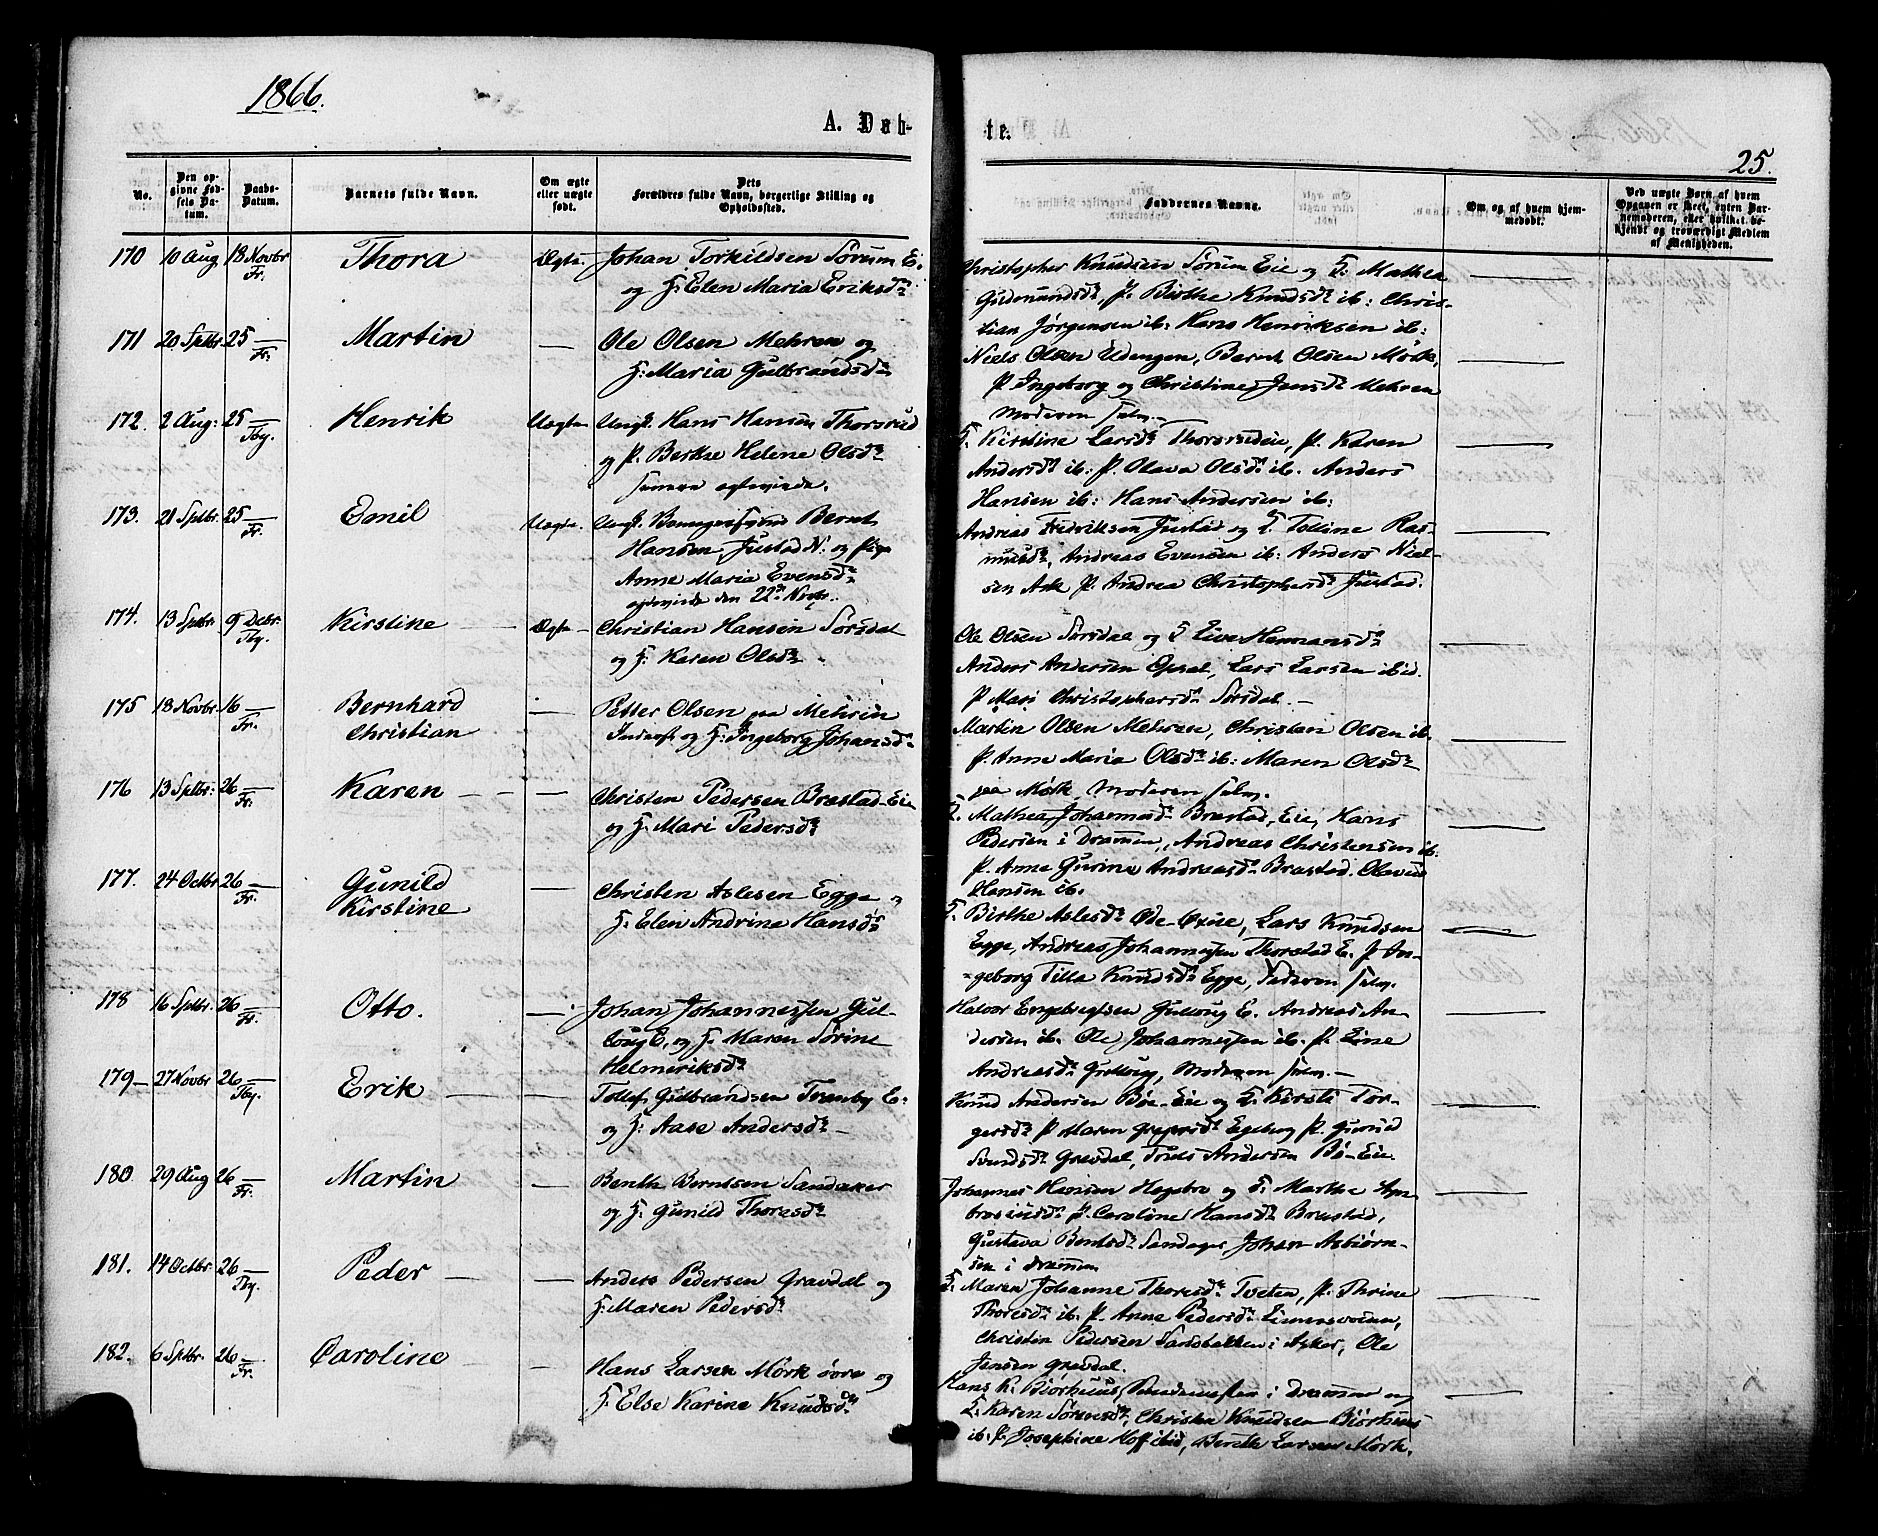 1866.
A. Døb-
te.
25.
No.
Den op-
givne Fød-
sels Da-
tum.
Daabs-
Datum.
Barnets fulde Navn.
Om ægte
eller uægte
født.
Dets
Forældres fulde Navn, borgerlige Stilling og
Opholdssted.
Faddernes Navne.
Om og af hvem hjem-
medøbt.
Ved uægte Børn af hvem
Opgaven er skeet, enten Bar-
nemoderen, eller hvilket be-
kjendt og troværdigt Medlem
af Menigheden.
170 10 Aug 18 Novbr Fr. Thora Ægte. Johan Torkildsen Sörum E.
og H: Elen Maria Eriksdr
Christopher Knudsen Sörum Eie og H: Mathea
Gudmundsdr, P. Birthe Knudsdr ib: Chris-
tian Jörgensen ib: Hans Henriksen ib:
171 20 Sptbr. 25 — Fr. Martin — Ole Olsen Mehren og
H: Maria Gulbrandsdr
Niels Olsen Udengen, Bernt Olsen Mörk,
P. Ingeborg og Christine Jensdr Mehren
Moderen selv. —
172. 2 Aug: 25 — Thg. Henrik Uægte Ungk. Hans Hansen Thorsrud
og P. Berthe Helene Olsdr
senere ægteviede.
H. Kirstine Larsdr Thorsrudeie, P. Karen
Andersdr ib: P. Olava Olsdr ib. Anders
Hansen ib: Hans Andersen ib:
173. 21 Sptbr. 25 — Fr. Emil Uægte. Ungk. Bernt
Hansen Justad N. og Pige
Anne Maria Evensdr
ægteviede den 22de Novbr.
Andreas Fredriksen Justad og H. Tolline Ras-
musdr, Andreas Evensen ib: Anders Niel-
sen Ask P. Andrea Christophersdr Justad.
174. 13 Sptbr. 9 Debr. Thg. Kirstine — Ægte — Christian Hansen Sörsdal
og H: Karen Olsdr
Ole Olsen Sörsdal og H Live Hermansdr
Anders Andersen Opsal, Lars Larsen ibid.
P Mari Christophersdr Sörsdal. —
175 18 Novbr 16 — Fr. Bernhard
Christian — Petter Olsen paa Mehren
Inderst og H: Ingeborg Johansdr
Martin Olsen Mehren, Christian Olsen ib.
P. Anne Maria Olsdr ib: Maren Olsdr
paa Mörk, Moderen selv.
176 13 Sptbr: 26 — Fr: Karen — — Christen Pedersen Brastad-Eie
og H: Mari Pedersdr
H. Mathea Johannesdr Brastad, Eie, Hans
Pedersen i Drammen, Andreas Christensen ib:
P. Anne Gurine Andreasdr Brastad. Olaves
Hansen ib.
177. 24 Octbr 26 — Fr. Gunild
Kirstine — Christen Aslesen Egge og
H: Elen Andrine Hansdr
H. Birthe Aslesdr Öde-Egge, Lars Knudsen
Egge, Andreas Johannessen Thorstad E. P In-
geborg Tilla Knudsdr Egge, Faderen selv.
178 16 Sptbr. 26 — Fr. Otto. — Johan Johannessen Gul-
loug E. og H: Maren Sörine
Helmeriksdr
Halvor Engebregtsen Gulloug E. Andreas An-
dersen ib. Ole Johannessen ib. P. Line
Andreasdr Gulloug, Moderen selv. —
179 — 27 Novbr 26 — Thg. Erik — Tollef Gulbrandsen Tranby E.
og H: Aase Andersdr —
Knud Andersen Böe-Eie og H. Kirsti Tor-
gersdr P Maren Gregersdr Egeberg P. Gunild
Svendsdr Gravdal, Troels Andersen Bö-Eie.
180 29 Aug 26 — Fr. Martin — Benth Berntsen Sandaker
og H: Gunild Thoresdr
Johannes Hansen Hegsbro og H. Marthe Am-
brosiusdr P. Caroline Hansdr Brastad,
Gustava Bentsdr Sandager, Johan Asbiörn-
sen i Drammen
181. 14 Octbr. 26 — Thg. Peder — — Anders Pedersen Gravdal og
H: Maren Pedersdr
H. Maren Johanne Thoresdr Tveten, P. Thrine
Thoresdr ib. P. Anne Pedersdr
Christin Pedersen Sandsbakken i Asker, Ole
Jensen Gravdal.
182. 6 Sptbr. 26 — Fr. Caroline — — Hans Larsen Mörk övre og
H: Else Karine Knudsdr
Hans K. Biörhuus, i Drammen og
H. Karen Sörensdr, Christen Knudsen Biörhuus
ib. P. Josephine Hoff ibid, Larsen Mörk.